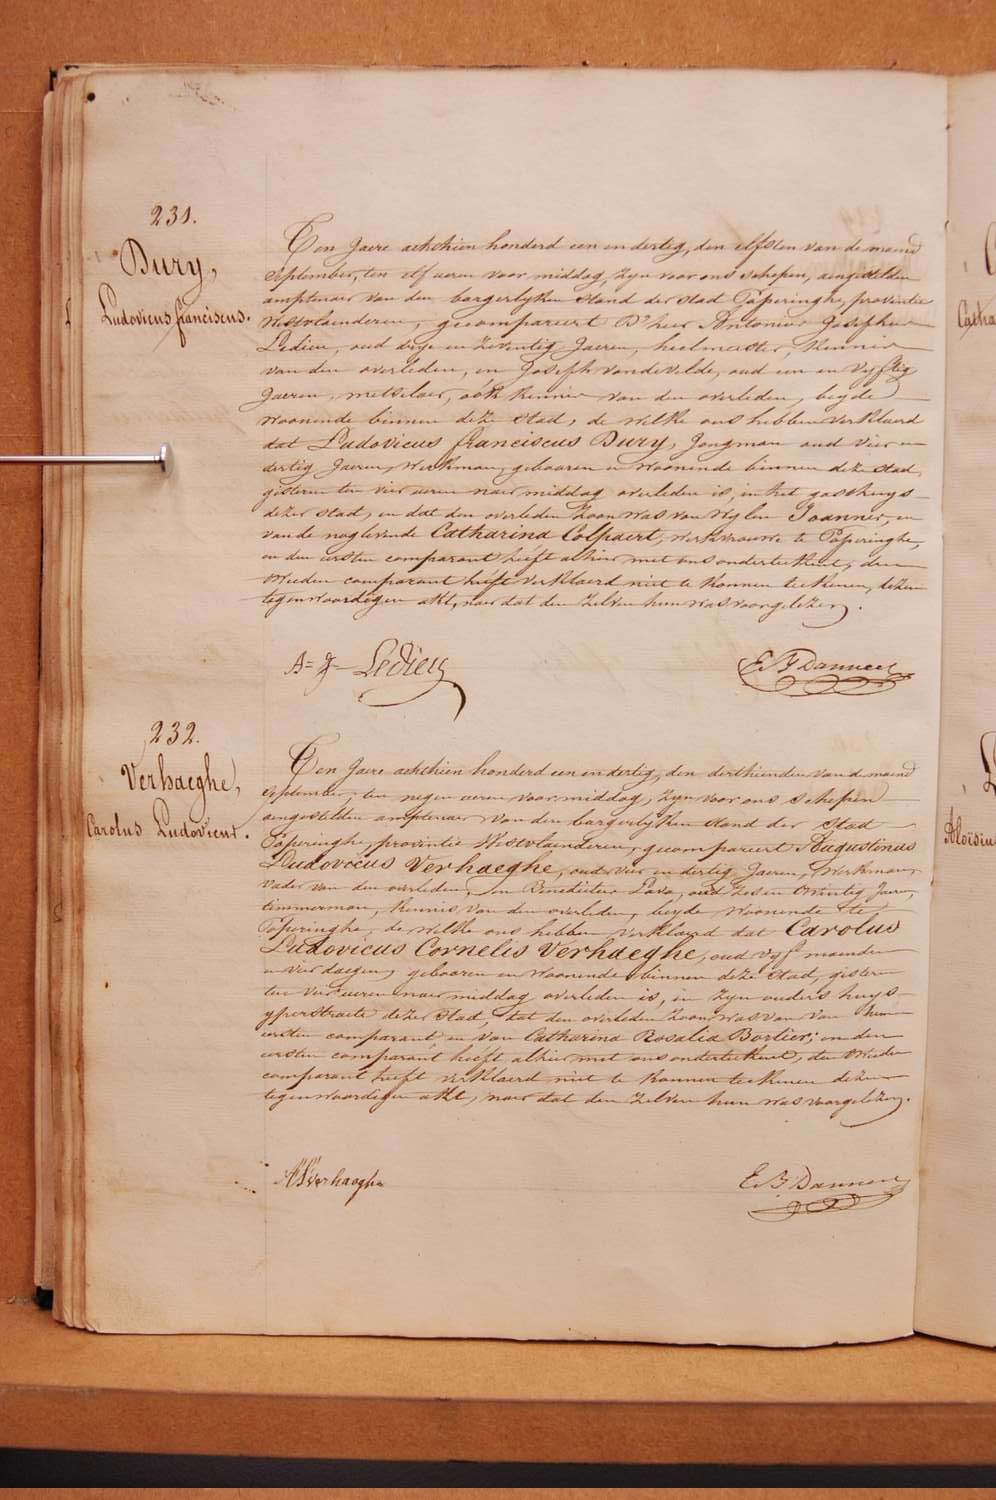 231.
Dury,
Ludovicus franciscus.
Ten Jaere achthien honderd een en dertig, den elfsten van de maend
September, ten elf ueren voor middag, zyn voor ons schepen, aengestelden
amptenaer van den borgerlyken stand der stad Poperinghe, provintie
Westvlaenderen, gecompareert D'heer Antonius Josephus
Ledieu, oud drye en zeventig Jaeren, heelmeester, kennis
van den overleden, en Joseph vandevelde, oud een en vyftig
Jaeren, metselaer, ook kennis van den overleden, beyde
woonende binnen deze stad, de welke ons hebben verklaerd
dat Ludovicus franciscus Dury, Jongman oud vier en
dertig Jaeren, werkman, gebooren en woonende binnen deze stad,
gisteren ten vier ueren naer middag overleden is, in het gasthuys
dezer stad, en dat den overleden zoon was van wylen Joannes, en
van de noglevende Catharina Colpaert, werkvrouwe te Poperinghe,
en den eersten comparant heeft alhier met ons onderteekent, den
tweeden comparant heeft verklaerd niet te konnen teekenen, dezen
tegenwoordigen akt, naer dat den zelven hun was voorgelezen.
A= J= Ledieu
E B Danneel
232.
Verhaeghe,
Carolus Ludovicus.
Ten Jaere achthien honderd een en dertig, den derthienden van de maend
September, ten negen ueren voormiddag, zyn voor ons schepen
aengestelden amptenaer van den borgerlyken stand der stad
Poperinghe, provintie Westvlaenderen, gecompareert Augustinus
Ludovicus Verhaeghe, oud vier en dertig Jaeren, Werkman,
vader van den overleden, en Benedictus Lava, oud zes en twintig Jaeren,
timmerman, kennis van den overleden, beyde woonende te
Poperinghe, de welke ons hebben verklaerd dat Carolus
Ludovicus Cornelis Verhaeghe, oud vyf maenden
en vier daegen, gebooren en woonende binnen deze stad, gisteren
ten vier ueren naer middag overleden is, in zyn ouders huys
yperstraete dezer stad, dat den overleden zoon was van van hem
eersten comparant, en van Catharina Rosalia Bortier; en den
eersten comparant heeft alhier met ons onderteekent, den tweeden
comparant heeft verklaerd niet te konnen teekenen dezen
tegenwoordigen akt, naer dat den zelven hun was voorgelezen.
Verhaeghe
E B Danneel
Catha
Aloïsius